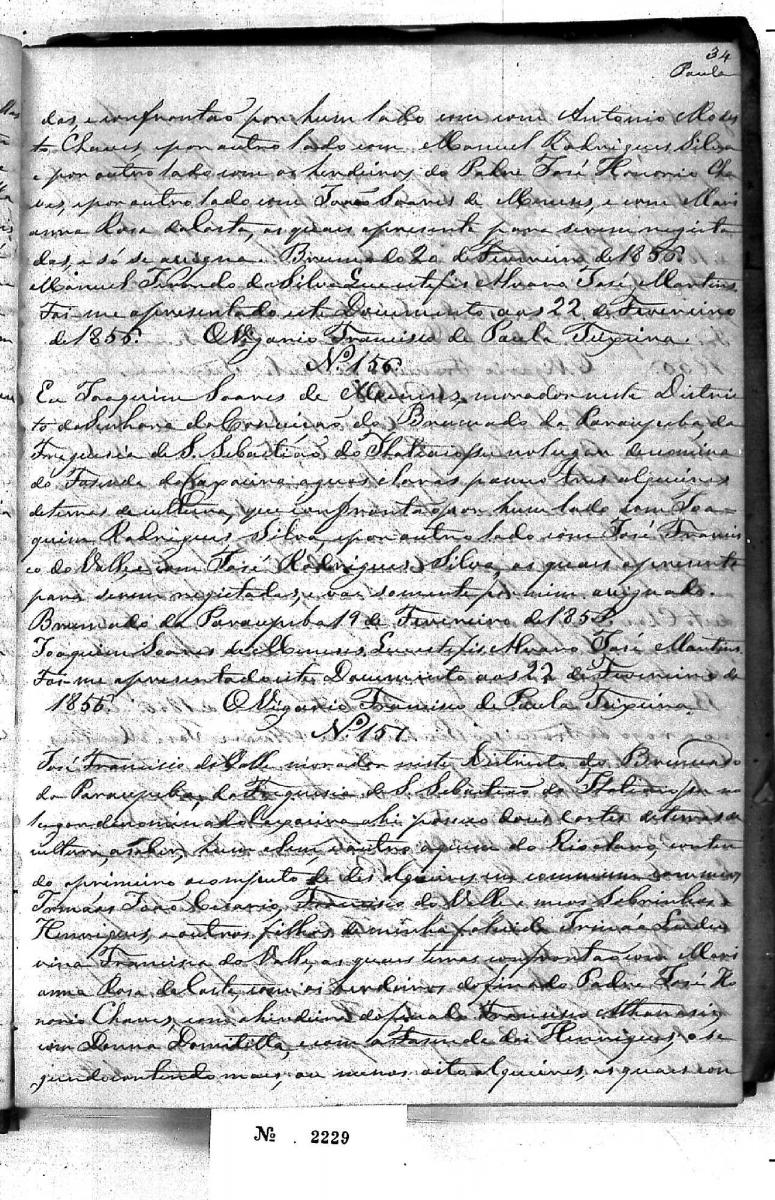 34
Paula
das, e confrontão por hum lado com com Antonio Modes
to Chaves, e por outro lado com Manuel Rodrigues Silva
e por outro lado com os herdeiros do Padre José Honorio Cha
ves, e por outro lado com João Soares de Meneses, e com Mari
anna Rosa da Costa, as quais apresente para serem regista
das, e só se asigna. Brumado 20 de Fevereiro de 1856.
Manuel da Silva Que este fis Alvaro José Martins
Foi-me apresentado este Documento aos 22 de Fevereiro
de 1856. O Vigario Francisco de Paula Teixeira
Nº 156
Eu Joaquim Soares de Meneses, morador neste Distric
to da Senhora da Conceicão do Brumado da Paraupeba, da
Freguesia de S. Sebastião do Itatiaiossu no lugar denomina
do Fasenda da Caxoeira aguas claras possuo tres alqueires
de terras de cultura, que confrontão por hum lado com Joa=
quim Rodrigues Silva, e por outro lado com José Francis
co do Valle, e com José Rodrigues Silva, as quais apresento
para serem registadas, e vai somente por mim asignado.
Brumado da Paraupeba 19 de Fevereiro de 1856.
Joaquim Soares de Meneses, Que este fis Alvaro José Martins.
Foi-me apresentado este Documento aos 22 de Fevereiro de
1856. O Vigario Francisco de Paula Teixeira.
Nº 157
José Francisco do Valle morador neste Districto do Brumado
da Paraupeba, da Freguesia de S. Sebastião do Itatiaiossu no
lugar denominado Caxoeira ahi possuo dous cortes de terras de
cultura, a saber, hum e outro do Rio claro, conten
do o primeiro o computo de des alqueires em commum com meos
Irmãos João Cesario, Francisco do Valle e meos Sobrinhos
Henriques, e outros filhos de minha falecida Irmãa Ludu
vina Francisca do Valle, as quais terras confrontão com Mari
anna Rosa da Costa, com os herdeiros do finado Padre José Ho
norio Chaves, com a herdeira do finado Francisco Athanasio,
com Donna Domitilla, e com a Fasenda dos Henriques, o se
gundo contendo mais, ou menos oito alqueires, as quais con
Nº . 2229